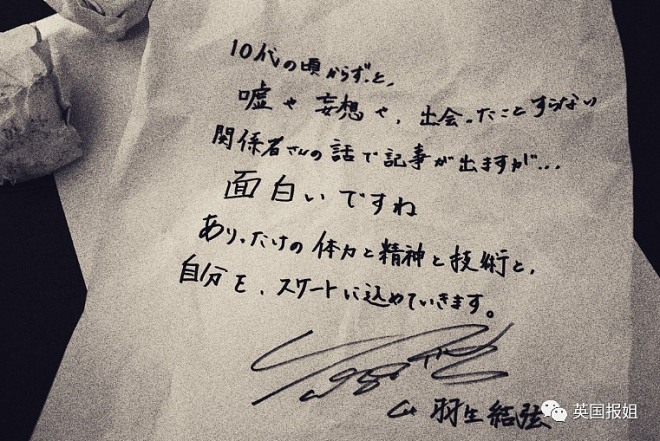 10代の頃からずっと、
嘘や妄想や、出会ったことすらない
関係者さんの話で記事が出ますが…
面白いですね
ありったけの体力と精神と技術と、
自分を、スケートに込めていきます。
羽生結弦
英国报姐